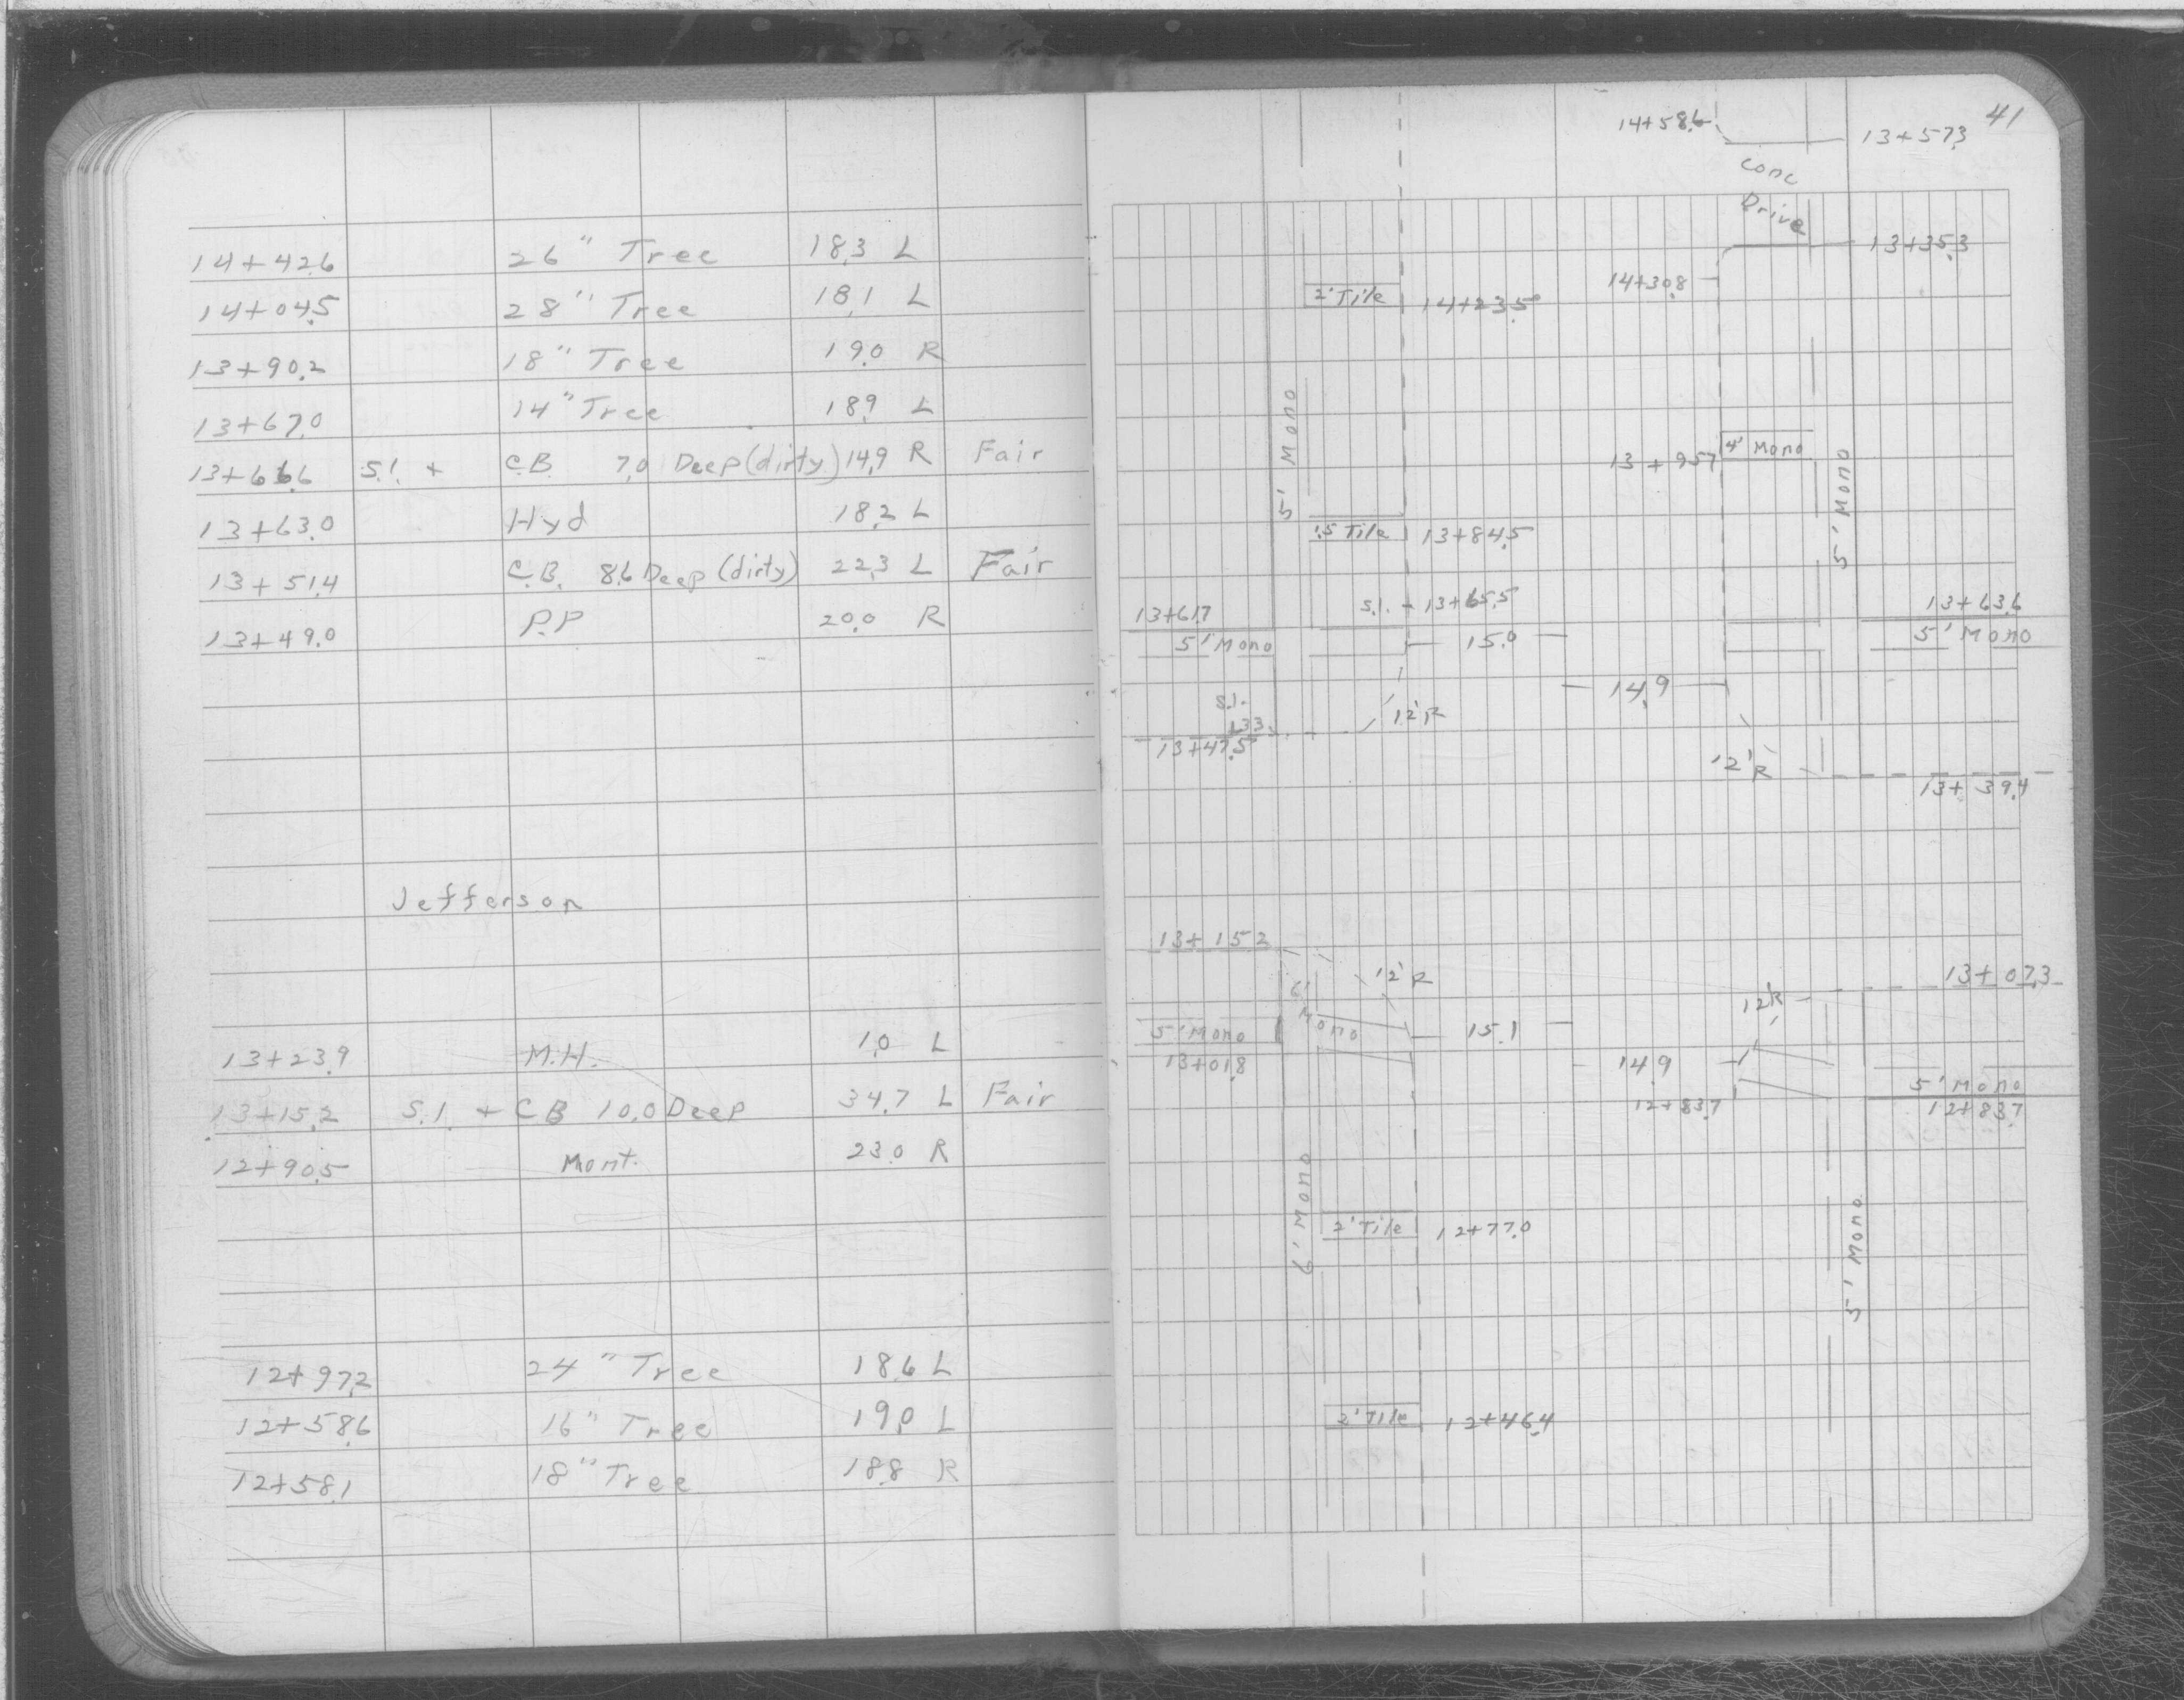 14+42.6 26" Tree 18.3 L
14+04.5 28" Tree 18.1 L
13+90.2 18" Tree 19.0 R
13+67.0 14" Tree 18.9 L
13+66.6 S.I. + C.B. 7.0 Deep (dirty) 14.9 R Fair
13+63.0 Hyd 18.2 L
13+51.4 C.B. 8.6 Deep (dirty) 22.3 L Fair
13+49.0 P.P 20.0 R
Jefferson
13+23.9 M.H. 1.0 L
13+15.2 S.I. + CB 10.0 Deep 34.7 L Fair
12+90.5 Mont. 23.0 R
12+97.2 24" Tree 18.6 L
12+58.6 16" Tree 19.0 L
12+58.1 18" Tree 18.8 R
41
14+58.6 13+57.3
Conc
Drive
13+35.3
14+30.8
2' Tile 14+23.5
5' Mono
4' Mono
13+95.7
5' Mono
1.5 Tile 13+84.5
S.I. - 13+65.5
13+61.7 13+63.6
5' Mono 15.0 5' Mono
14.9
S.I.
+33
12'R
13+47.5
12'R
13+39.4
13+15.2
12'R 13+07.3
6' Mono
12'R
5' Mono 15.1
13+01.8 14.9
5' Mono
12+83.7 12+83.7
6' Mono
2' Tile 12+77.0
5' Mono
2' Tile 12+46.4